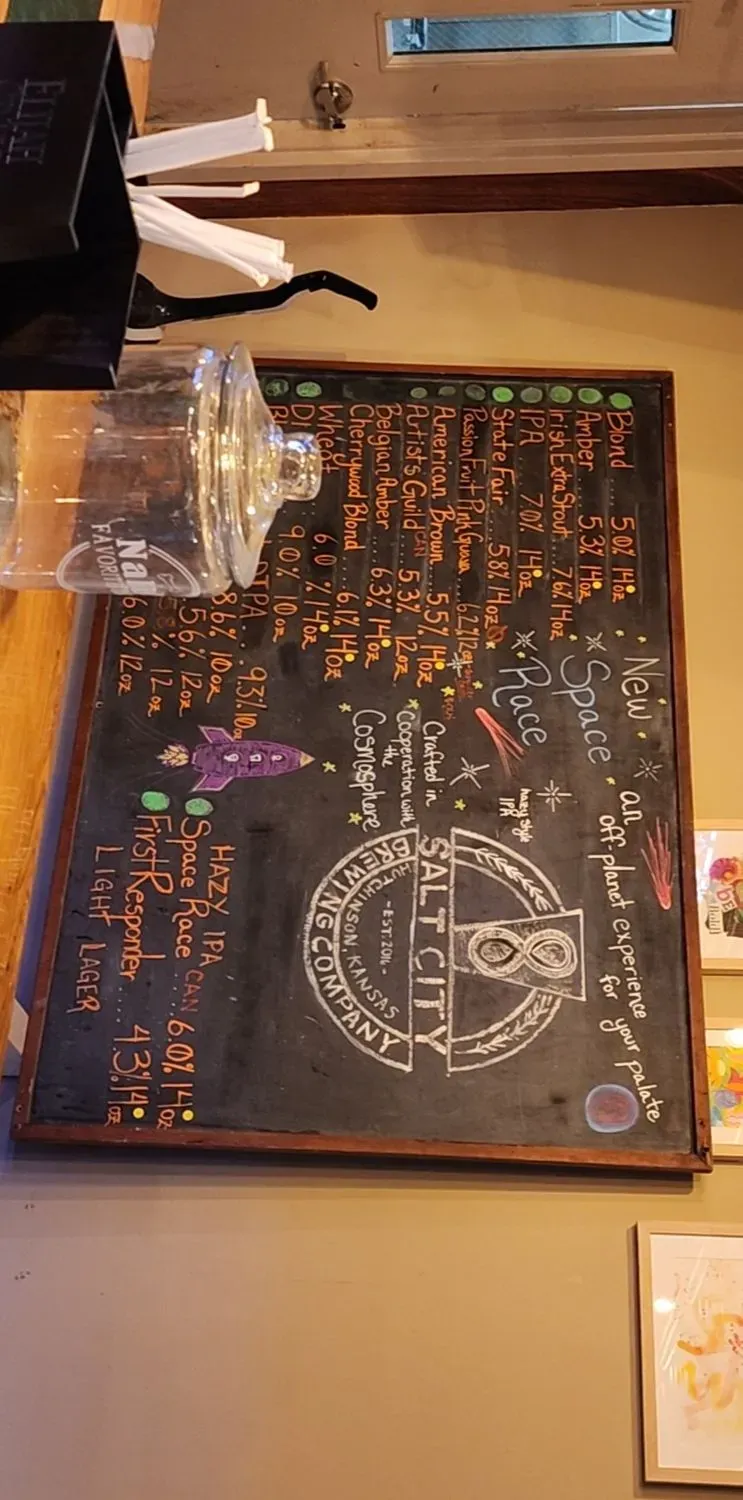 Blond ... 5.0% 14oz
Amber ... 5.3% 14oz
Irish Extra Stout ... 7.6% 14oz
IPA ... 7.0% 14oz
State Fair ... 5.8% 14oz
Passion Fruit Pink Guava ... 6.2% 12oz
American Brown ... 5.5% 14oz
Artist's Guild CAN ... 5.3% 12oz
Belgian Amber ... 6.3% 14oz
Cherrywood Blond ... 6.1% 14oz
Wheat ... 6.0% 14oz
9.0% 10oz
DIPA ... 9.3% 10oz
8.6% 10oz
5.6% 12oz
5.8% 12oz
6.0% 12oz
New
Space
Race
an
off-planet experience
for your palate
hazy style
IPA
Crafted in
cooperation with
the
Cosmosphere
SALT CITY
BREWING COMPANY
HUTCHINSON, KANSAS
~EST. 2016~
HAZY IPA
Space Race CAN 6.0% 14oz
First Responder ... 4.3% 14oz
LIGHT LAGER
ELIJAH